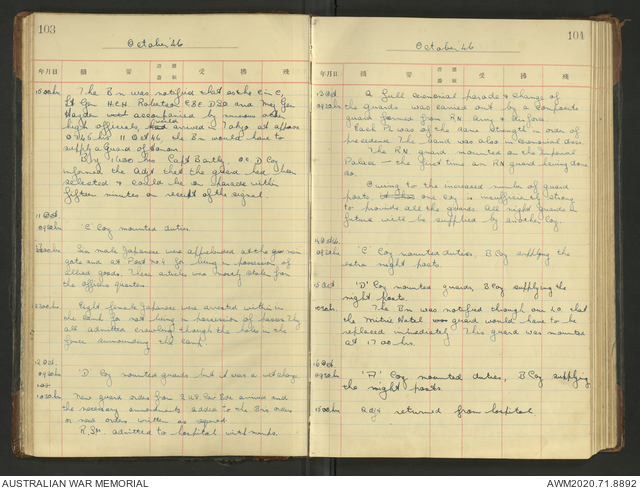 103
October '46
年月日 摘要 受 拂 残
1500hr The Bn was notified that as the C in C,
Lt Gen H.C.H. Robertson CBE DSO and Maj Gen
accompanied by numerous other
high officials, would arrive in Tokyo at approx
0745 hrs 11 Oct 46, the Bn would have to
supply a Guard of Honour.
By 1600 hrs Capt Bartly. o.c D Coy
informed the Adjt that the guard had been
selected & could be on parade within
fifteen minutes on receipt of the signal.
11 Oct.
0900hr 'C' Coy mounted duties.
Six male Japanese was apprehended at the
gate and at Post No 4 for being in possession of
allied goods. These articles was mostly stolen from
the officers quarters.
Eight female Japanese were arrested within
the camp for not being in possession of passes. They
all admitted crawling through the hole in the
fence surrounding the camp.
12 Oct.
0900hr 'D' Coy mounted guards but it was a wet change
over
1030hr New guard orders from 2 U.S. Cav Bde arrived and
the necessary amendments added to the Bns orders
or new orders written as required.
R.S.M admitted to hospital with mumps.
104
October 46
年月日 摘要 受 拂 残
13 Oct
0900hr A full ceremonial parade & change of
the guards was carried out by a composite
guard formed from RN Army & Airforce.
Each Pl was of the same strength in order of
precedence. The band was also in ceremonial dress.
The RN guard mounted on the Imperial
Palace - the first time an RN guard being done
so.
Owing to the increased number of guard
posts, one Coy is insufficiently strong
to provide all the guards. All night guards in
future will be supplied by another Coy.
14 Oct
0900hr 'C' Coy mounted duties, B Coy supplying the
extra night posts.
15 Oct 'D' Coy mounted guards, B Coy supplying the
night posts.
The Bn was notified though our LO that
the Mitsui Hotel guard would have to be
replaced immediately. This guard was mounted
at 1700 hrs.
16 Oct.
0900hr 'A' Coy mounted duties, B Coy supplying
the night posts.
1500hr Adjt returned from hospital.
AUSTRALIAN WAR MEMORIAL
AWM2020.71.8892